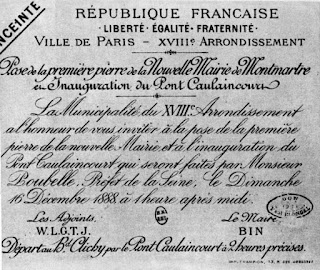 ENCEINTE
RÉPUBLIQUE FRANCAISE
LIBERTÉ · ÉGALITÉ · FRATERNITÉ ·
VILLE DE PARIS - XVIIIe ARRONDISSEMENT
Pose de la première pierre de la Nouvelle Mairie de Montmartre
et Inauguration du Pont Caulaincourt
La Municipalité du XVIIIe. Arrondissement
a l'honneur de vous inviter à la pose de la première
pierre de la nouvelle Mairie et à l'inauguration du
Pont Caulaincourt qui seront faites par Monsieur
Poubelle, Préfet de la Seine, le Dimanche
16 Décembre 1888 à 1 heure après midi.
Les Adjoints, Le Maire
W. L. G. T. J. BIN
DON
Départ au Bd. Clichy par le Pont Caulaincourt à 2 heures précises.